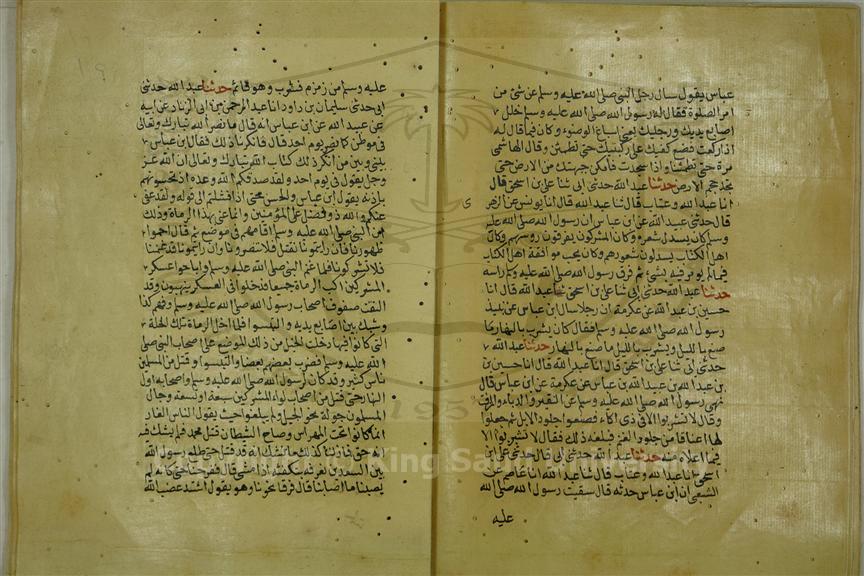 عباس يقول سال رجل النبي صلى الله عليه وسلم عن شئ من
امر الصلوة فقال له رسول الله صلى الله عليه وسلم خلل
اصابع يديك ورجليك يعني اسباغ الوضوء وكان فيما قال له
اذا ركعت فضع كفيك على ركبتيك حتى تطمئن وقال الهاشمي
مرة حتى تطمئنا واذا سجدت فامكن جبهتك من الارض حتى
تجد حجم الارض حدثنا عبد الله حدثني ابي ثنا علي بن اسحق قال
انا عبد الله وعتاب قال ثنا عبد الله قال انا يونس عن الزهري
قال حدثني عبيد الله عن ابن عباس ان رسول الله صلى الله عليه
وسلم كان يسدل شعره وكان المشركون يفرقون روسهم وكان
اهل الكتاب يسدلون شعورهم وكان يحب موافقة اهل الكتاب
فيما لم يومر فيه بشئ ثم فرق رسول الله صلى الله عليه وسلم راسه
حدثنا عبد الله حدثني ابي ثنا علي بن اسحق ثنا عبد الله قال انا
حسين بن عبد الله عن عكرمة ان رجلا سال ابن عباس عن نبيذ
رسول الله صلى الله عليه وسلم فقال كان يشرب بالنهار ما
صنع بالليل ويشرب بالليل ما صنع بالنهار حدثنا عبد الله
حدثني ابي ثنا علي بن اسحق قال انا عبد الله قال انا حسين بن
بن عبد الله بن عبيد الله بن عباس عن عكرمة عن ابن عباس قال
نهى رسول الله صلى الله عليه وسلم عن النقير والدباء والمزفت
وقال لا تشربوا الا في ذي اكاء فصنعوا جلود الابل ثم جعلوا
لها اعناقا من جلود الغنم فبلغه ذلك فقال لا تشربوا الا
فيما اعلاه منه حدثنا عبد الله حدثني ابي قال حدثني علي بن
اسحق انا عبد الله وعتاب قال ثنا عبد الله انا عاصم عن
الشعبي ان ابن عباس حدثه قال سقيت رسول الله صلى الله
عليه
عليه وسلم من زمزم فشرب وهو قائم حدثنا عبد الله حدثني
ابي حدثني سليمان بن داود انا عبد الرحمن بن ابي الزناد عن ابيه
عن عبيد الله عن ابن عباس انه قال ما نصر الله تبارك وتعالى
في موطن كما نصر يوم احد قال فانكرنا ذلك فقال ابن عباس
بيني وبين من انكر ذلك كتاب الله تبارك وتعالى ان الله عز
وجل يقول في يوم احد ولقد صدقكم الله وعده اذ تحسونهم
باذنه يقول ابن عباس والحس حتى اذا فشلتم الى قوله ولقد عفى
عنكم والله ذو فضل على المؤمنين وانما عنى بهذا الرماة وذلك
ان النبي صلى الله عليه وسلم اقامهم في موضع ثم قال احموا
ظهورنا فان رايتمونا نقتل فلا تنصرونا وان رايتمونا قد غنمنا
فلا تشركونا فلما غنم النبي صلى الله عليه وسلم واباحوا عسكر
المشركين اكب الرماة جميعا فدخلوا في العسكر ينهبون وقد
التقت صفوف اصحاب رسول الله صلى الله عليه وسلم فهم كذا
وشبك بين اصابع يديه والتبسوا فلما اخل الرماة تلك الخلة
التي كانوا فيها دخلت الخيل من ذلك الموضع على اصحاب النبي صلى
الله عليه وسلم فضرب بعضهم بعضا والتبسوا وقتل من المسلمين
ناس كثير وقد كان لرسول الله صلى الله عليه وسلم واصحابه اول
النهار حتى قتل من اصحاب لواء المشركين سبعة او تسعة وجال
المسلمون جولة نحو الجبل ولم يبلغوا حيث يقول الناس الغار
انما كانوا تحت المهراس وصاح الشيطان قتل محمد فلم يشك فيه
انه حق فما زلنا كذلك ما نشك انه قد قتل حتى طلع رسول الله
بين السعدين نعرفه بتكفئه اذا مشى قال ففرحنا حتى كانه لم
يصبنا ما اصابنا قال فرقا نحونا وهو يقول اشتد غضب الله
King Saud University
195